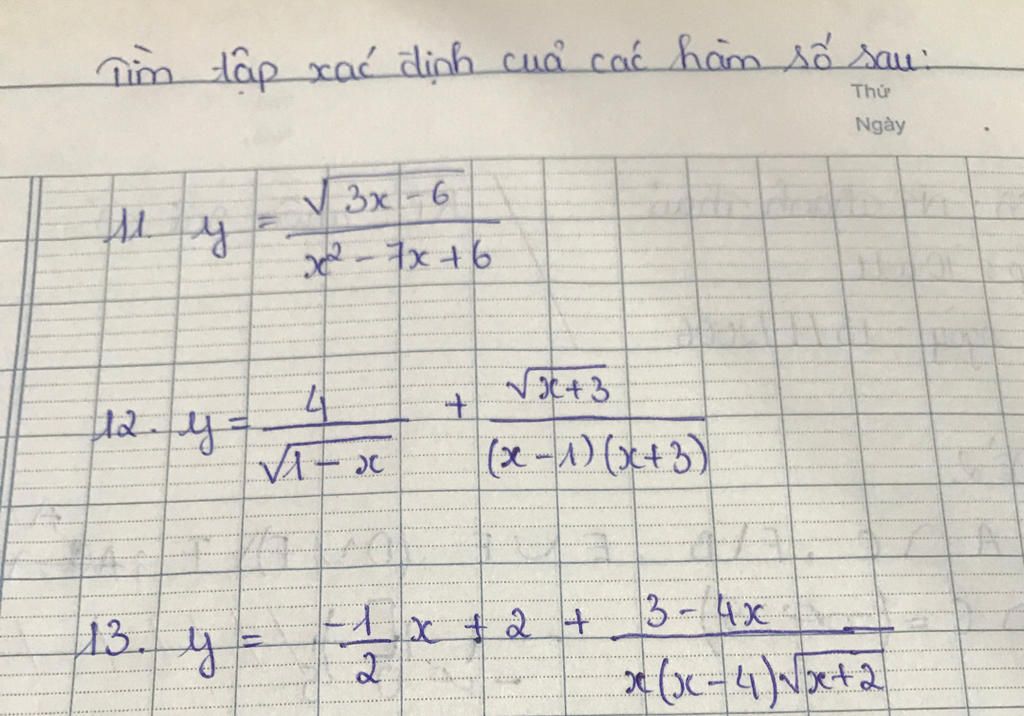 Tìm tập xác định của các hàm số sau:
Thứ
Ngày
11. y = \frac{\sqrt{3x-6}}{x^2-7x+6}
12. y = \frac{4}{\sqrt{1-x}} + \frac{\sqrt{x+3}}{(x-1)(x+3)}
13. y = \frac{-1}{2}x + 2 + \frac{3-4x}{x(x-4)\sqrt{x+2}}